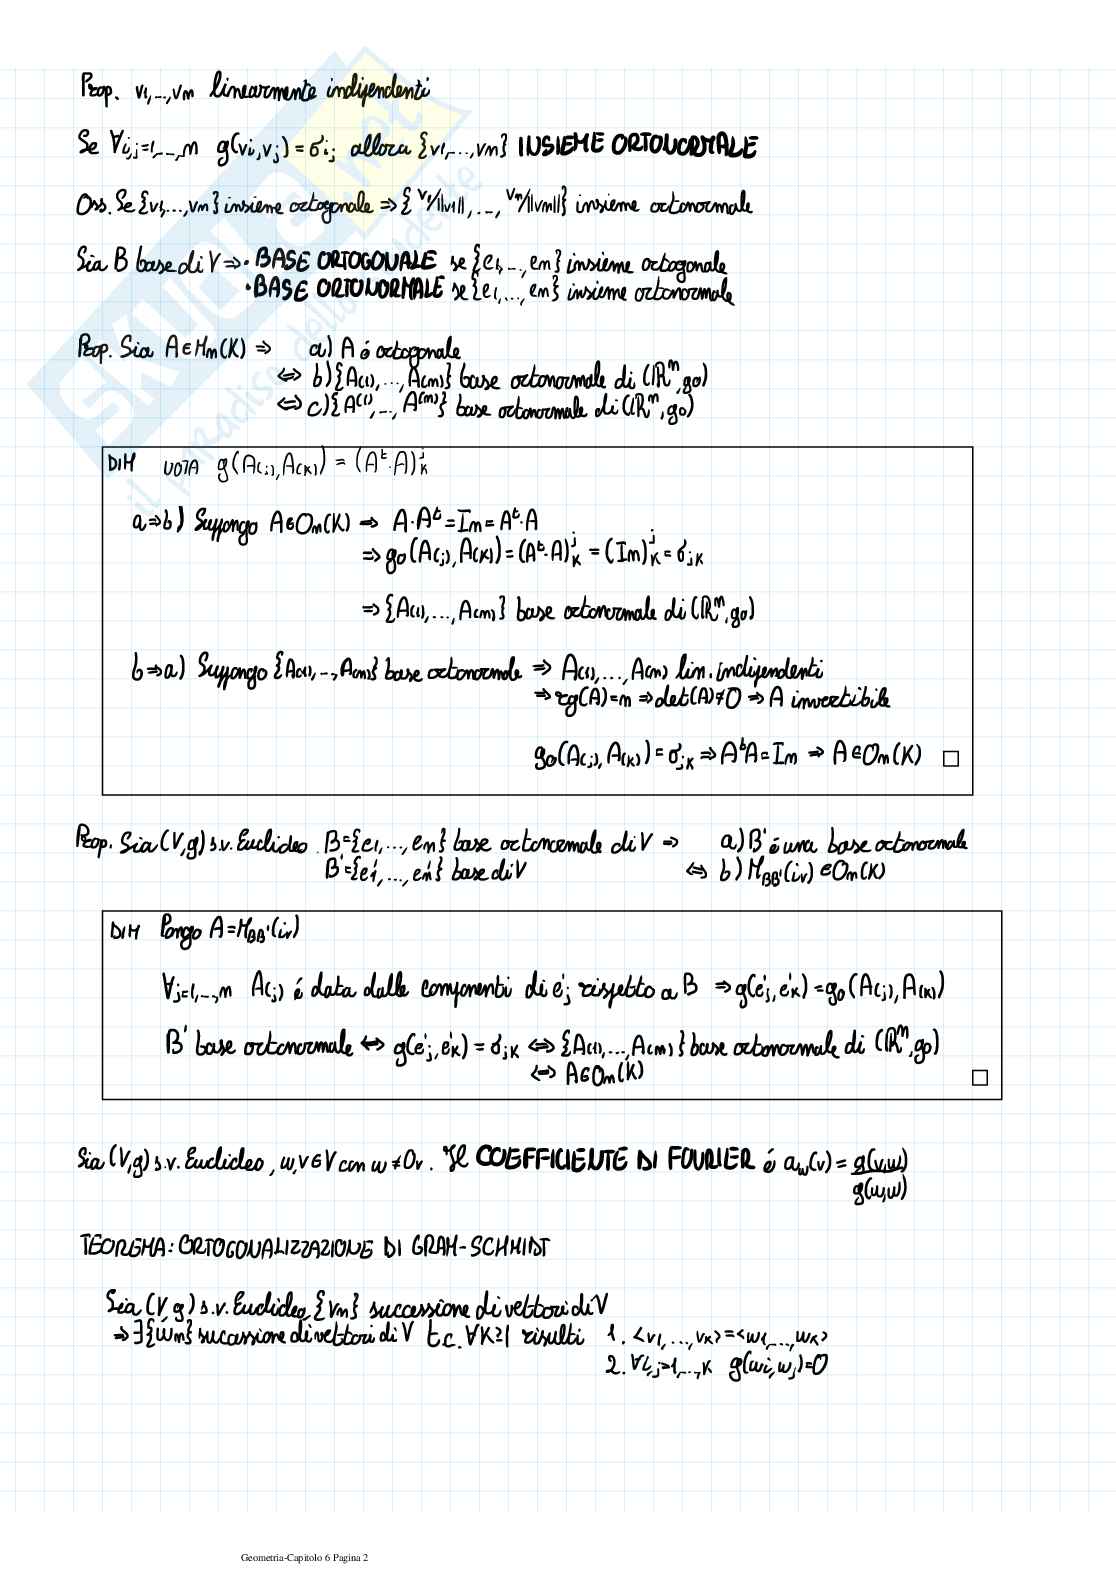 Prop. v1,...,vm linearmente indipendenti
Se ∀i,j=1,...,n g(vi,vj)=σij allora {v1,...,vm} INSIEME ORTONORMALE
Oss. Se {v1,...,vm} insieme ortogonale ⇒ {v1/||v1||,...,vm/||vm||} insieme ortonormale
Sia B base di V ⇒ · BASE ORTOGONALE se {e1,...,em} insieme ortogonale
· BASE ORTONORMALE se {e1,...,em} insieme ortonormale
Prop. Sia A∈Mm(K) ⇒ a) A é ortogonale
⇔ b) {A(1),...,A(m)} base ortonormale di (ℝⁿ,g0)
⇔ c) {A⁽¹⁾,...,A⁽ᵐ⁾} base ortonormale di (ℝⁿ,g0)
DIM NOTA g(A(j),A(k)) = (Aᵗ·A)ʲₖ
a⇒b) Suppongo A∈Om(K) ⇒ A·Aᵗ=Im=Aᵗ·A
⇒ g0(A(j),A(k))=(Aᵗ·A)ʲₖ=(Im)ʲₖ=σjk
⇒ {A(1),...,A(m)} base ortonormale di (ℝⁿ,g0)
b⇒a) Suppongo {A(1),...,A(m)} base ortonormale ⇒ A(1),...,A(m) lin. indipendenti
⇒ rg(A)=m ⇒ det(A)≠0 ⇒ A invertibile
g0(A(j),A(k))=σjk ⇒ AᵗA=Im ⇒ A∈Om(K) □
Prop. Sia (V,g) s.v. Euclideo B={e1,...,em} base ortonormale di V ⇒ a) B' é una base ortonormale
B'={e'1,...,e'm} base di V ⇔ b) MBB'(iv)∈Om(K)
DIM Pongo A=MBB'(iv)
∀j=1,...,m A(j) é data dalle componenti di e'j rispetto a B ⇒ g(e'j,e'k)=g0(A(j),A(k))
B' base ortonormale ⇔ g(e'j,e'k)=σjk ⇔ {A(1),...,A(m)} base ortonormale di (ℝⁿ,g0)
⇔ A∈Om(K) □
Sia (V,g) s.v. Euclideo, w,v∈V con w≠0v. Il COEFFICIENTE DI FOURIER é aw(v)=g(v,w)/g(w,w)
TEOREMA: ORTOGONALIZZAZIONE DI GRAM-SCHMIDT
Sia (V,g) s.v. Euclideo, {vm} successione di vettori di V
⇒ ∃{wm} successione di vettori di V t.c. ∀K≥1 risulti 1. <v1,...,vk>=<w1,...,wk>
2. ∀i,j=1,...,k g(wi,wj)=0
Geometria-Capitolo 6 Pagina 2
SKUOLA.net
il paradiso dello studente